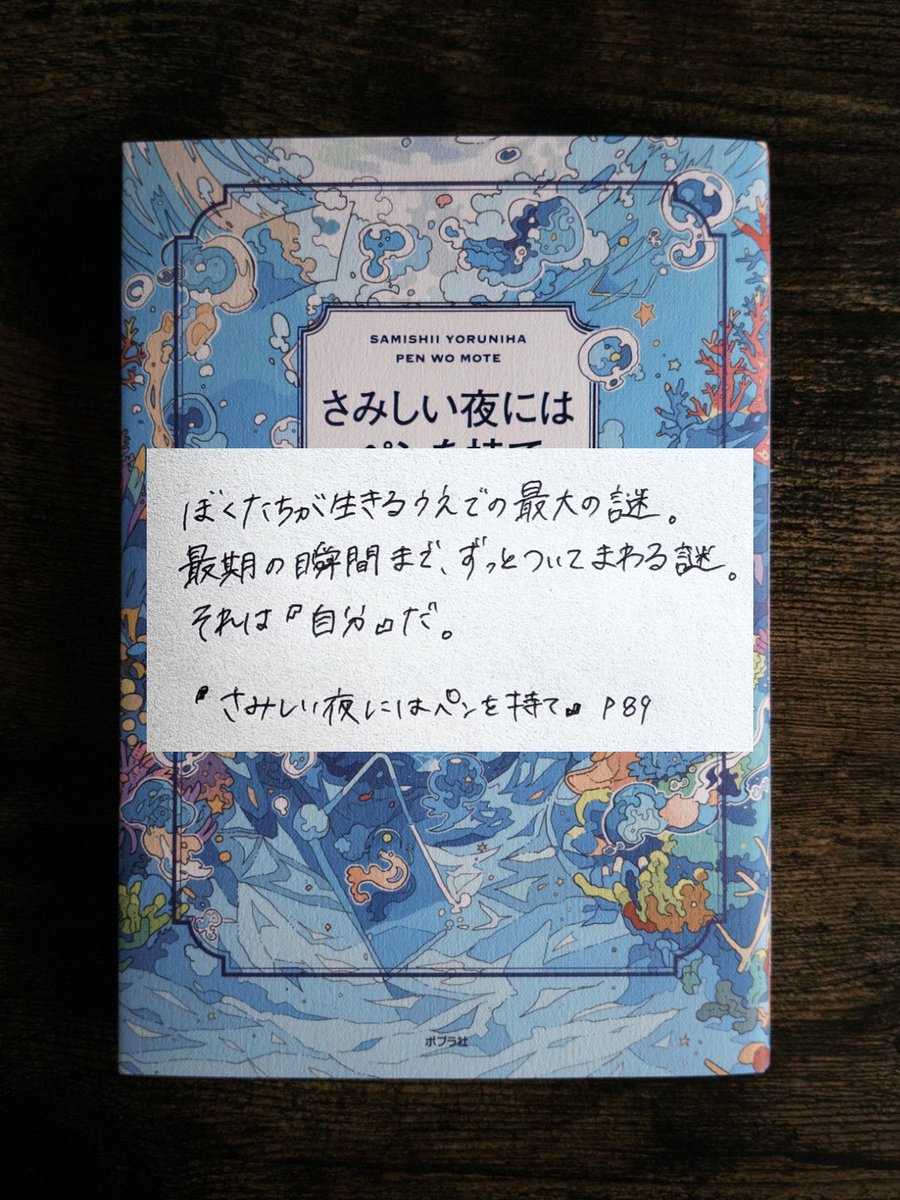 SAMISHII YORUNIHA
PEN WO MOTE
さみしい夜には
ペンを持て
ぼくたちが生きるうえでの最大の謎。
最期の瞬間まで、ずっとついてまわる謎。
それは『自分』だ。
『さみしい夜にはペンを持て』 P89
ポプラ社